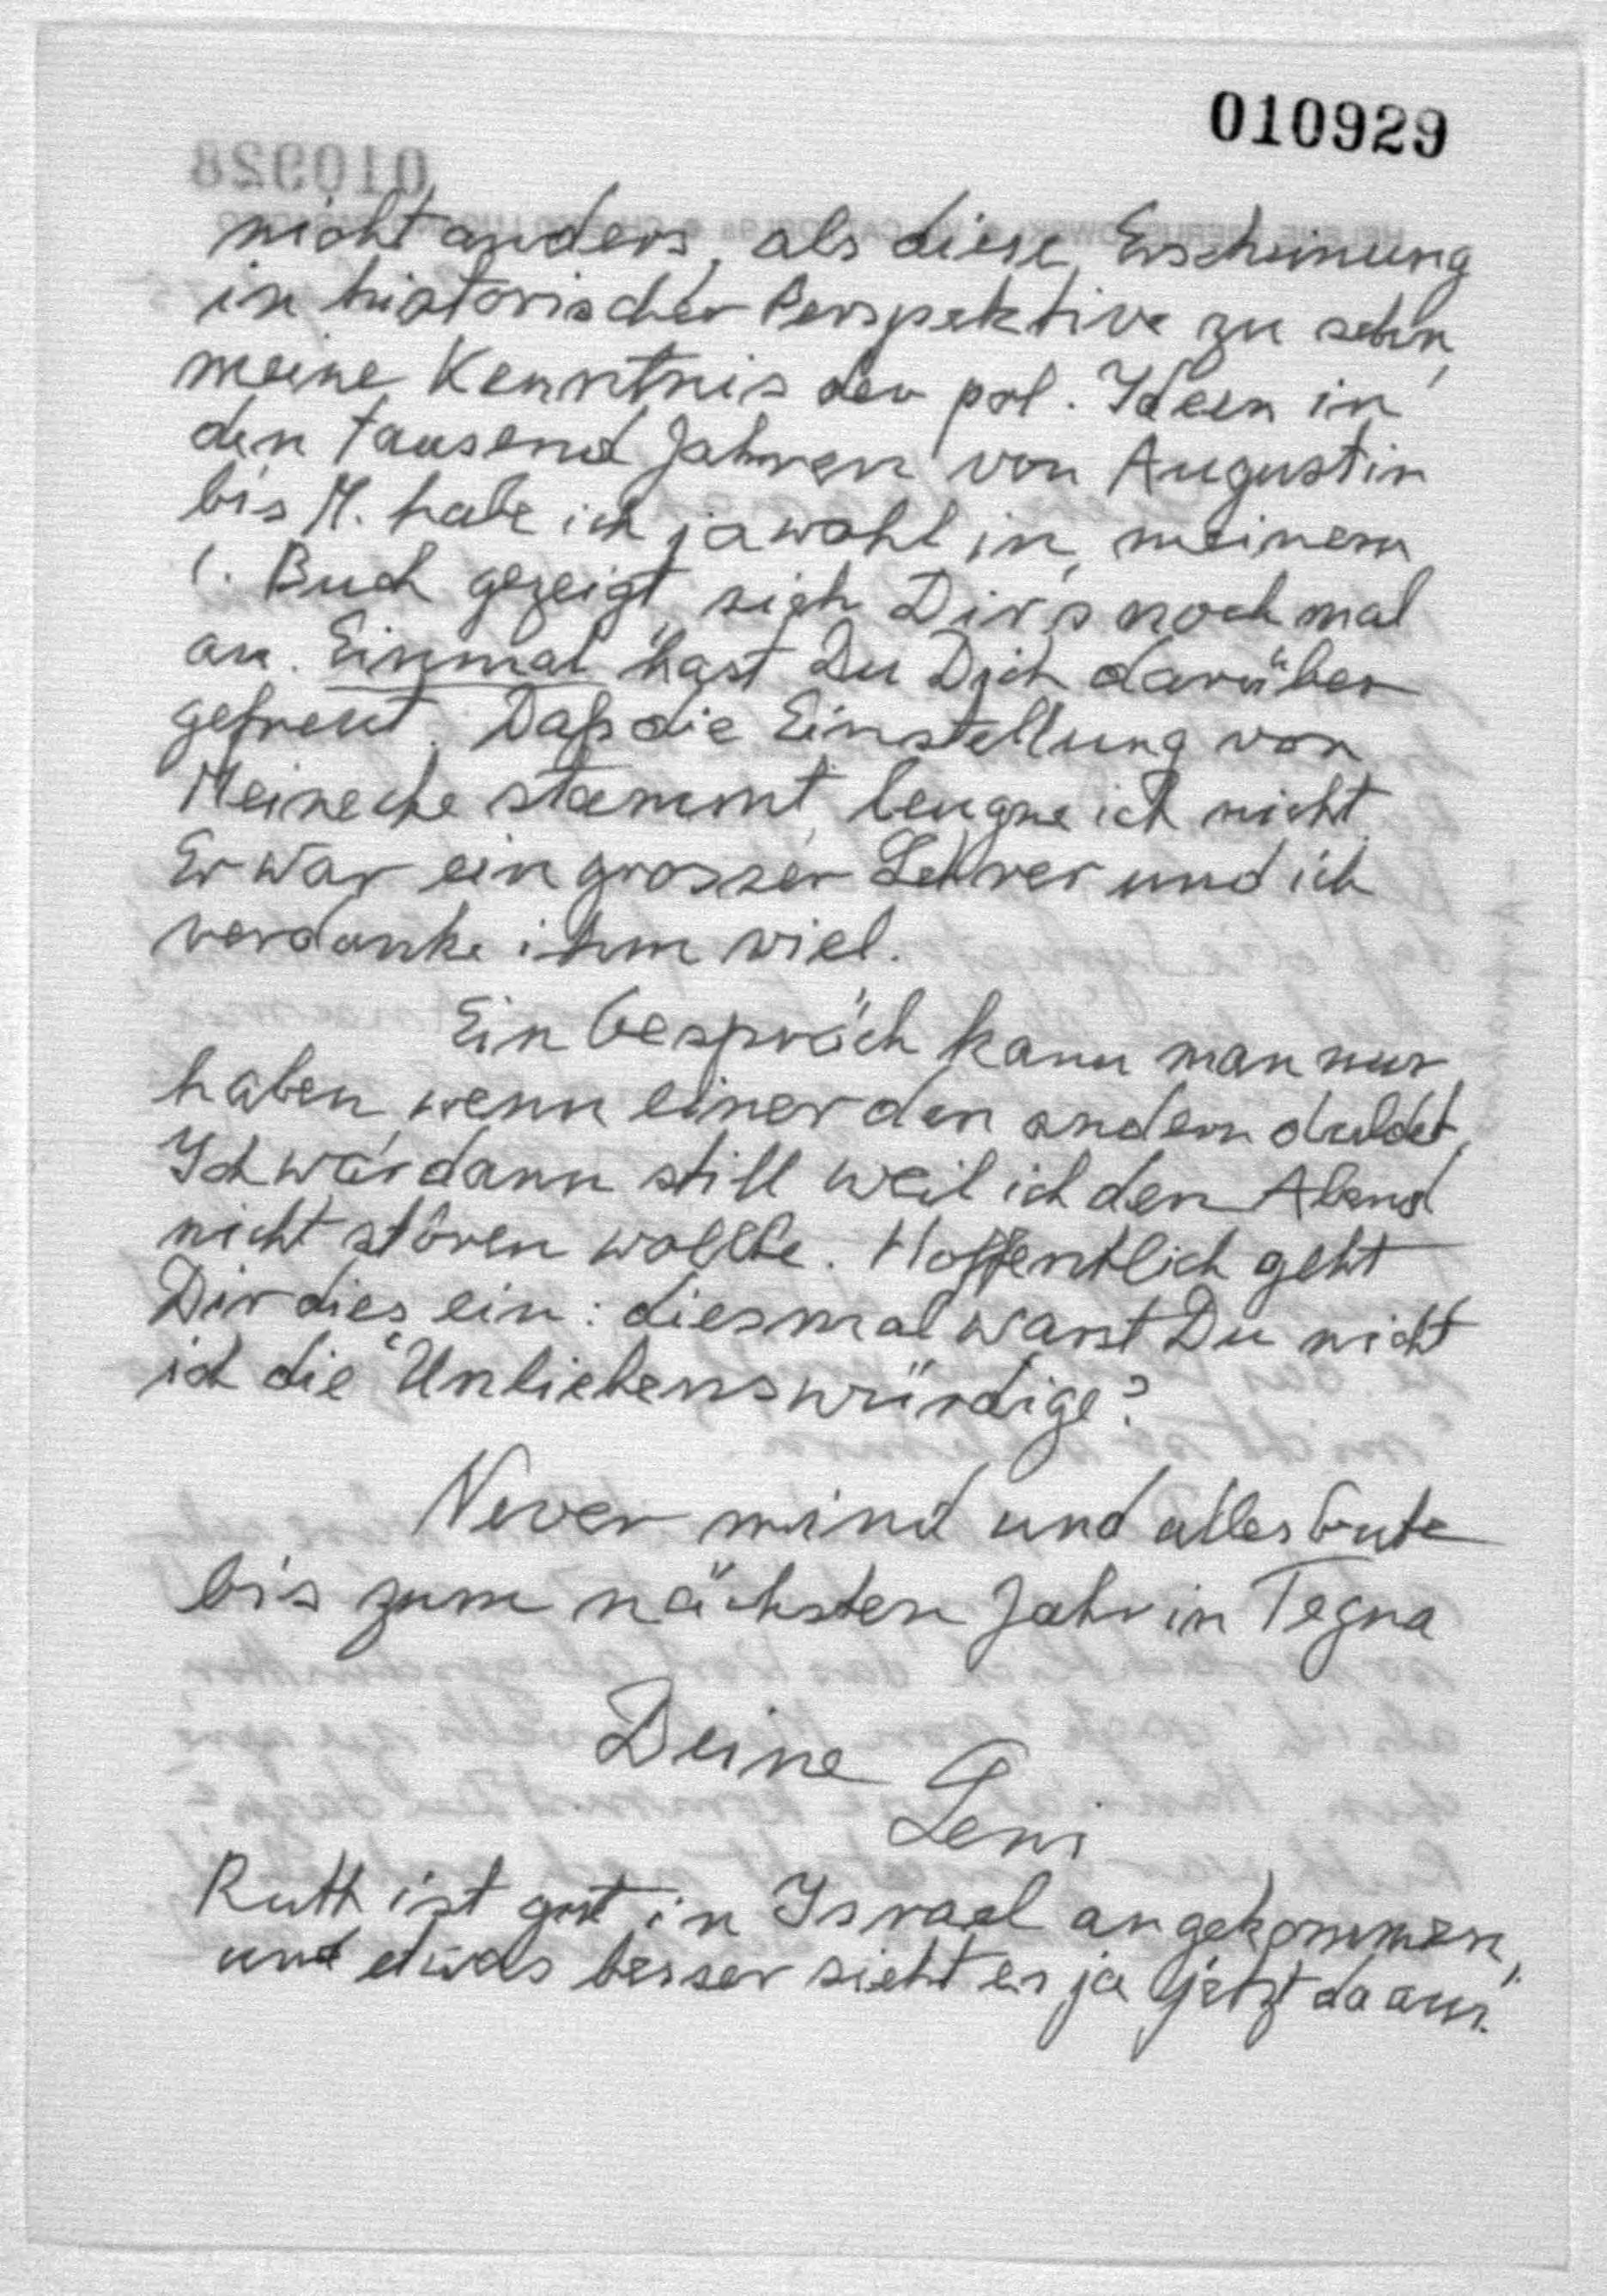 010929
nicht anders, als diese Erscheinung
in historischer Perspektive zu sehn,
meine Kenntnis der pol. Ideen in
den tausend Jahren von Augustin
bis M. habe ich jawohl in meinem
1. Buch gezeigt, sieh Dir's noch mal
an. Einmal hast Du Dich darüber
gefreut. Daß die Einstellung von
Meinecke stammt, leugne ich nicht.
Er war ein grosser Lehrer und ich
verdanke ihm viel.
Ein Gespräch kann man nur
haben, wenn einer den andern duldet,
Ich war dann still weil ich den Abend
nicht stören wollte. Hoffentlich geht
Dir dies ein: diesmal warst Du nicht
ich die "Unliebenswürdige"?
Never mind und alles Gute
bis zum nächsten Jahr in Tegna
Deine
Leni
Ruth ist gut in Israel angekommen,
und etwas besser sieht es ja jetzt da aus.